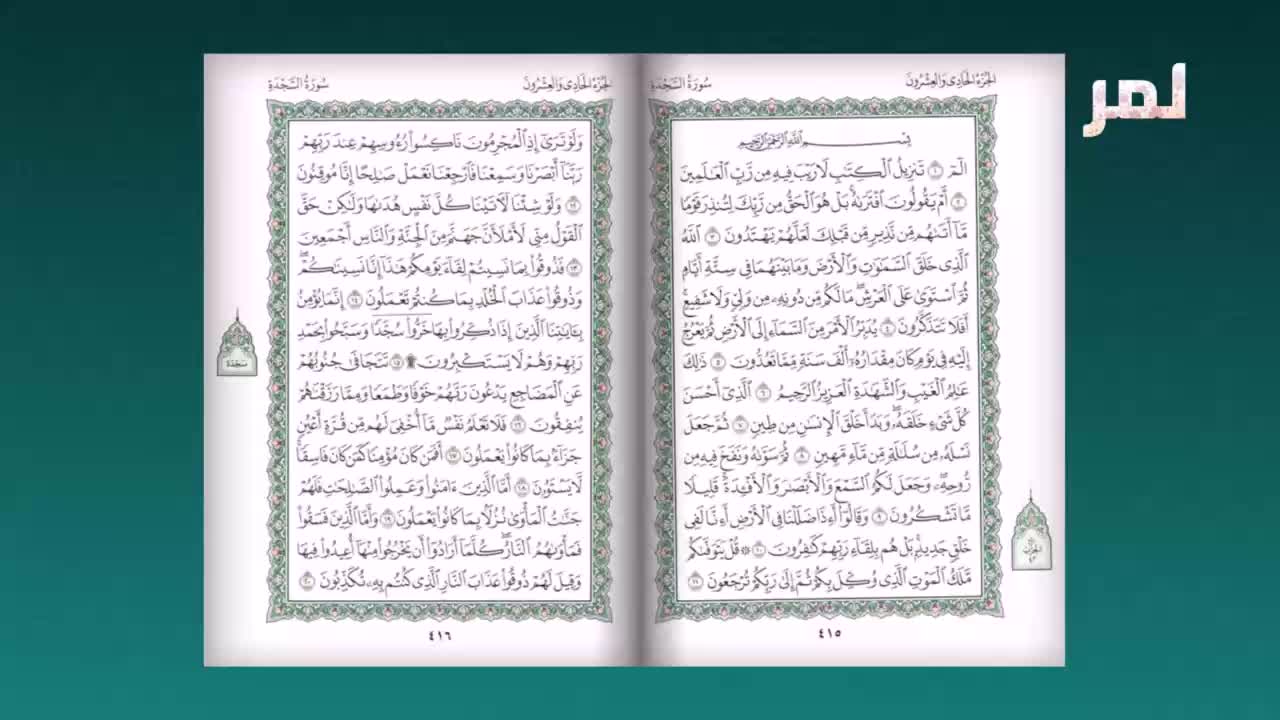 لمر
الجزء الحادي والعشرون
سُورَةُ السَّجْدَةِ
بِسْمِ اللَّهِ الرَّحْمَٰنِ الرَّحِيمِ
الٓمٓ ١ تَنزِيلُ الْكِتَٰبِ لَا رَيْبَ فِيهِ مِن رَّبِّ الْعَٰلَمِينَ
٢ أَمْ يَقُولُونَ افْتَرَىٰهُ بَلْ هُوَ الْحَقُّ مِن رَّبِّكَ لِتُنذِرَ قَوْمًا
مَّآ أَتَىٰهُم مِّن نَّذِيرٍ مِّن قَبْلِكَ لَعَلَّهُمْ يَهْتَدُونَ ٣ اللَّهُ
الَّذِي خَلَقَ السَّمَٰوَٰتِ وَالْأَرْضَ وَمَا بَيْنَهُمَا فِي سِتَّةِ أَيَّامٍ
ثُمَّ اسْتَوَىٰ عَلَى الْعَرْشِ مَا لَكُم مِّن دُونِهِ مِن وَلِيٍّ وَلَا شَفِيعٍ
أَفَلَا تَتَذَكَّرُونَ ٤ يُدَبِّرُ الْأَمْرَ مِنَ السَّمَآءِ إِلَى الْأَرْضِ ثُمَّ يَعْرُجُ
إِلَيْهِ فِي يَوْمٍ كَانَ مِقْدَارُهُ أَلْفَ سَنَةٍ مِّمَّا تَعُدُّونَ ٥ ذَٰلِكَ
عَٰلِمُ الْغَيْبِ وَالشَّهَٰدَةِ الْعَزِيزُ الرَّحِيمُ ٦ الَّذِي أَحْسَنَ
كُلَّ شَيْءٍ خَلَقَهُ وَبَدَأَ خَلْقَ الْإِنسَٰنِ مِن طِينٍ ٧ ثُمَّ جَعَلَ
نَسْلَهُ مِن سُلَٰلَةٍ مِّن مَّآءٍ مَّهِينٍ ٨ ثُمَّ سَوَّىٰهُ وَنَفَخَ فِيهِ مِن
رُّوحِهِ وَجَعَلَ لَكُمُ السَّمْعَ وَالْأَبْصَٰرَ وَالْأَفْـِٔدَةَ قَلِيلًا
مَّا تَشْكُرُونَ ٩ وَقَالُوٓا أَءِذَا ضَلَلْنَا فِي الْأَرْضِ أَءِنَّا لَفِي
خَلْقٍ جَدِيدٍ بَلْ هُم بِلِقَآءِ رَبِّهِمْ كَٰفِرُونَ ١٠ ۞ قُلْ يَتَوَفَّىٰكُم
مَّلَكُ الْمَوْتِ الَّذِي وُكِّلَ بِكُمْ ثُمَّ إِلَىٰ رَبِّكُمْ تُرْجَعُونَ ١١
٤١٥
الجزء الحادي والعشرون
سُورَةُ السَّجْدَةِ
وَلَوْ تَرَىٰٓ إِذِ الْمُجْرِمُونَ نَاكِسُوا رُءُوسِهِمْ عِندَ رَبِّهِمْ
رَبَّنَآ أَبْصَرْنَا وَسَمِعْنَا فَارْجِعْنَا نَعْمَلْ صَٰلِحًا إِنَّا مُوقِنُونَ
١٢ وَلَوْ شِئْنَا لَـَٔاتَيْنَا كُلَّ نَفْسٍ هُدَىٰهَا وَلَٰكِنْ حَقَّ
الْقَوْلُ مِنِّي لَأَمْلَأَنَّ جَهَنَّمَ مِنَ الْجِنَّةِ وَالنَّاسِ أَجْمَعِينَ
١٣ فَذُوقُوا بِمَا نَسِيتُمْ لِقَآءَ يَوْمِكُمْ هَٰذَآ إِنَّا نَسِينَٰكُمْ
وَذُوقُوا عَذَابَ الْخُلْدِ بِمَا كُنتُمْ تَعْمَلُونَ ١٤ إِنَّمَا يُؤْمِنُ
بِـَٔايَٰتِنَا الَّذِينَ إِذَا ذُكِّرُوا بِهَا خَرُّوا سُجَّدًا وَسَبَّحُوا بِحَمْدِ
رَبِّهِمْ وَهُمْ لَا يَسْتَكْبِرُونَ ۩ ١٥ تَتَجَافَىٰ جُنُوبُهُمْ
عَنِ الْمَضَاجِعِ يَدْعُونَ رَبَّهُمْ خَوْفًا وَطَمَعًا وَمِمَّا رَزَقْنَٰهُمْ
يُنفِقُونَ ١٦ فَلَا تَعْلَمُ نَفْسٌ مَّآ أُخْفِيَ لَهُم مِّن قُرَّةِ أَعْيُنٍ
جَزَآءً بِمَا كَانُوا يَعْمَلُونَ ١٧ أَفَمَن كَانَ مُؤْمِنًا كَمَن كَانَ فَاسِقًا
لَّا يَسْتَوُونَ ١٨ أَمَّا الَّذِينَ ءَامَنُوا وَعَمِلُوا الصَّٰلِحَٰتِ فَلَهُمْ
جَنَّٰتُ الْمَأْوَىٰ نُزُلًا بِمَا كَانُوا يَعْمَلُونَ ١٩ وَأَمَّا الَّذِينَ فَسَقُوا
فَمَأْوَىٰهُمُ النَّارُ كُلَّمَآ أَرَادُوٓا أَن يَخْرُجُوا مِنْهَآ أُعِيدُوا فِيهَا
وَقِيلَ لَهُمْ ذُوقُوا عَذَابَ النَّارِ الَّذِي كُنتُم بِهِ تُكَذِّبُونَ ٢٠
سجدة
٤١٦